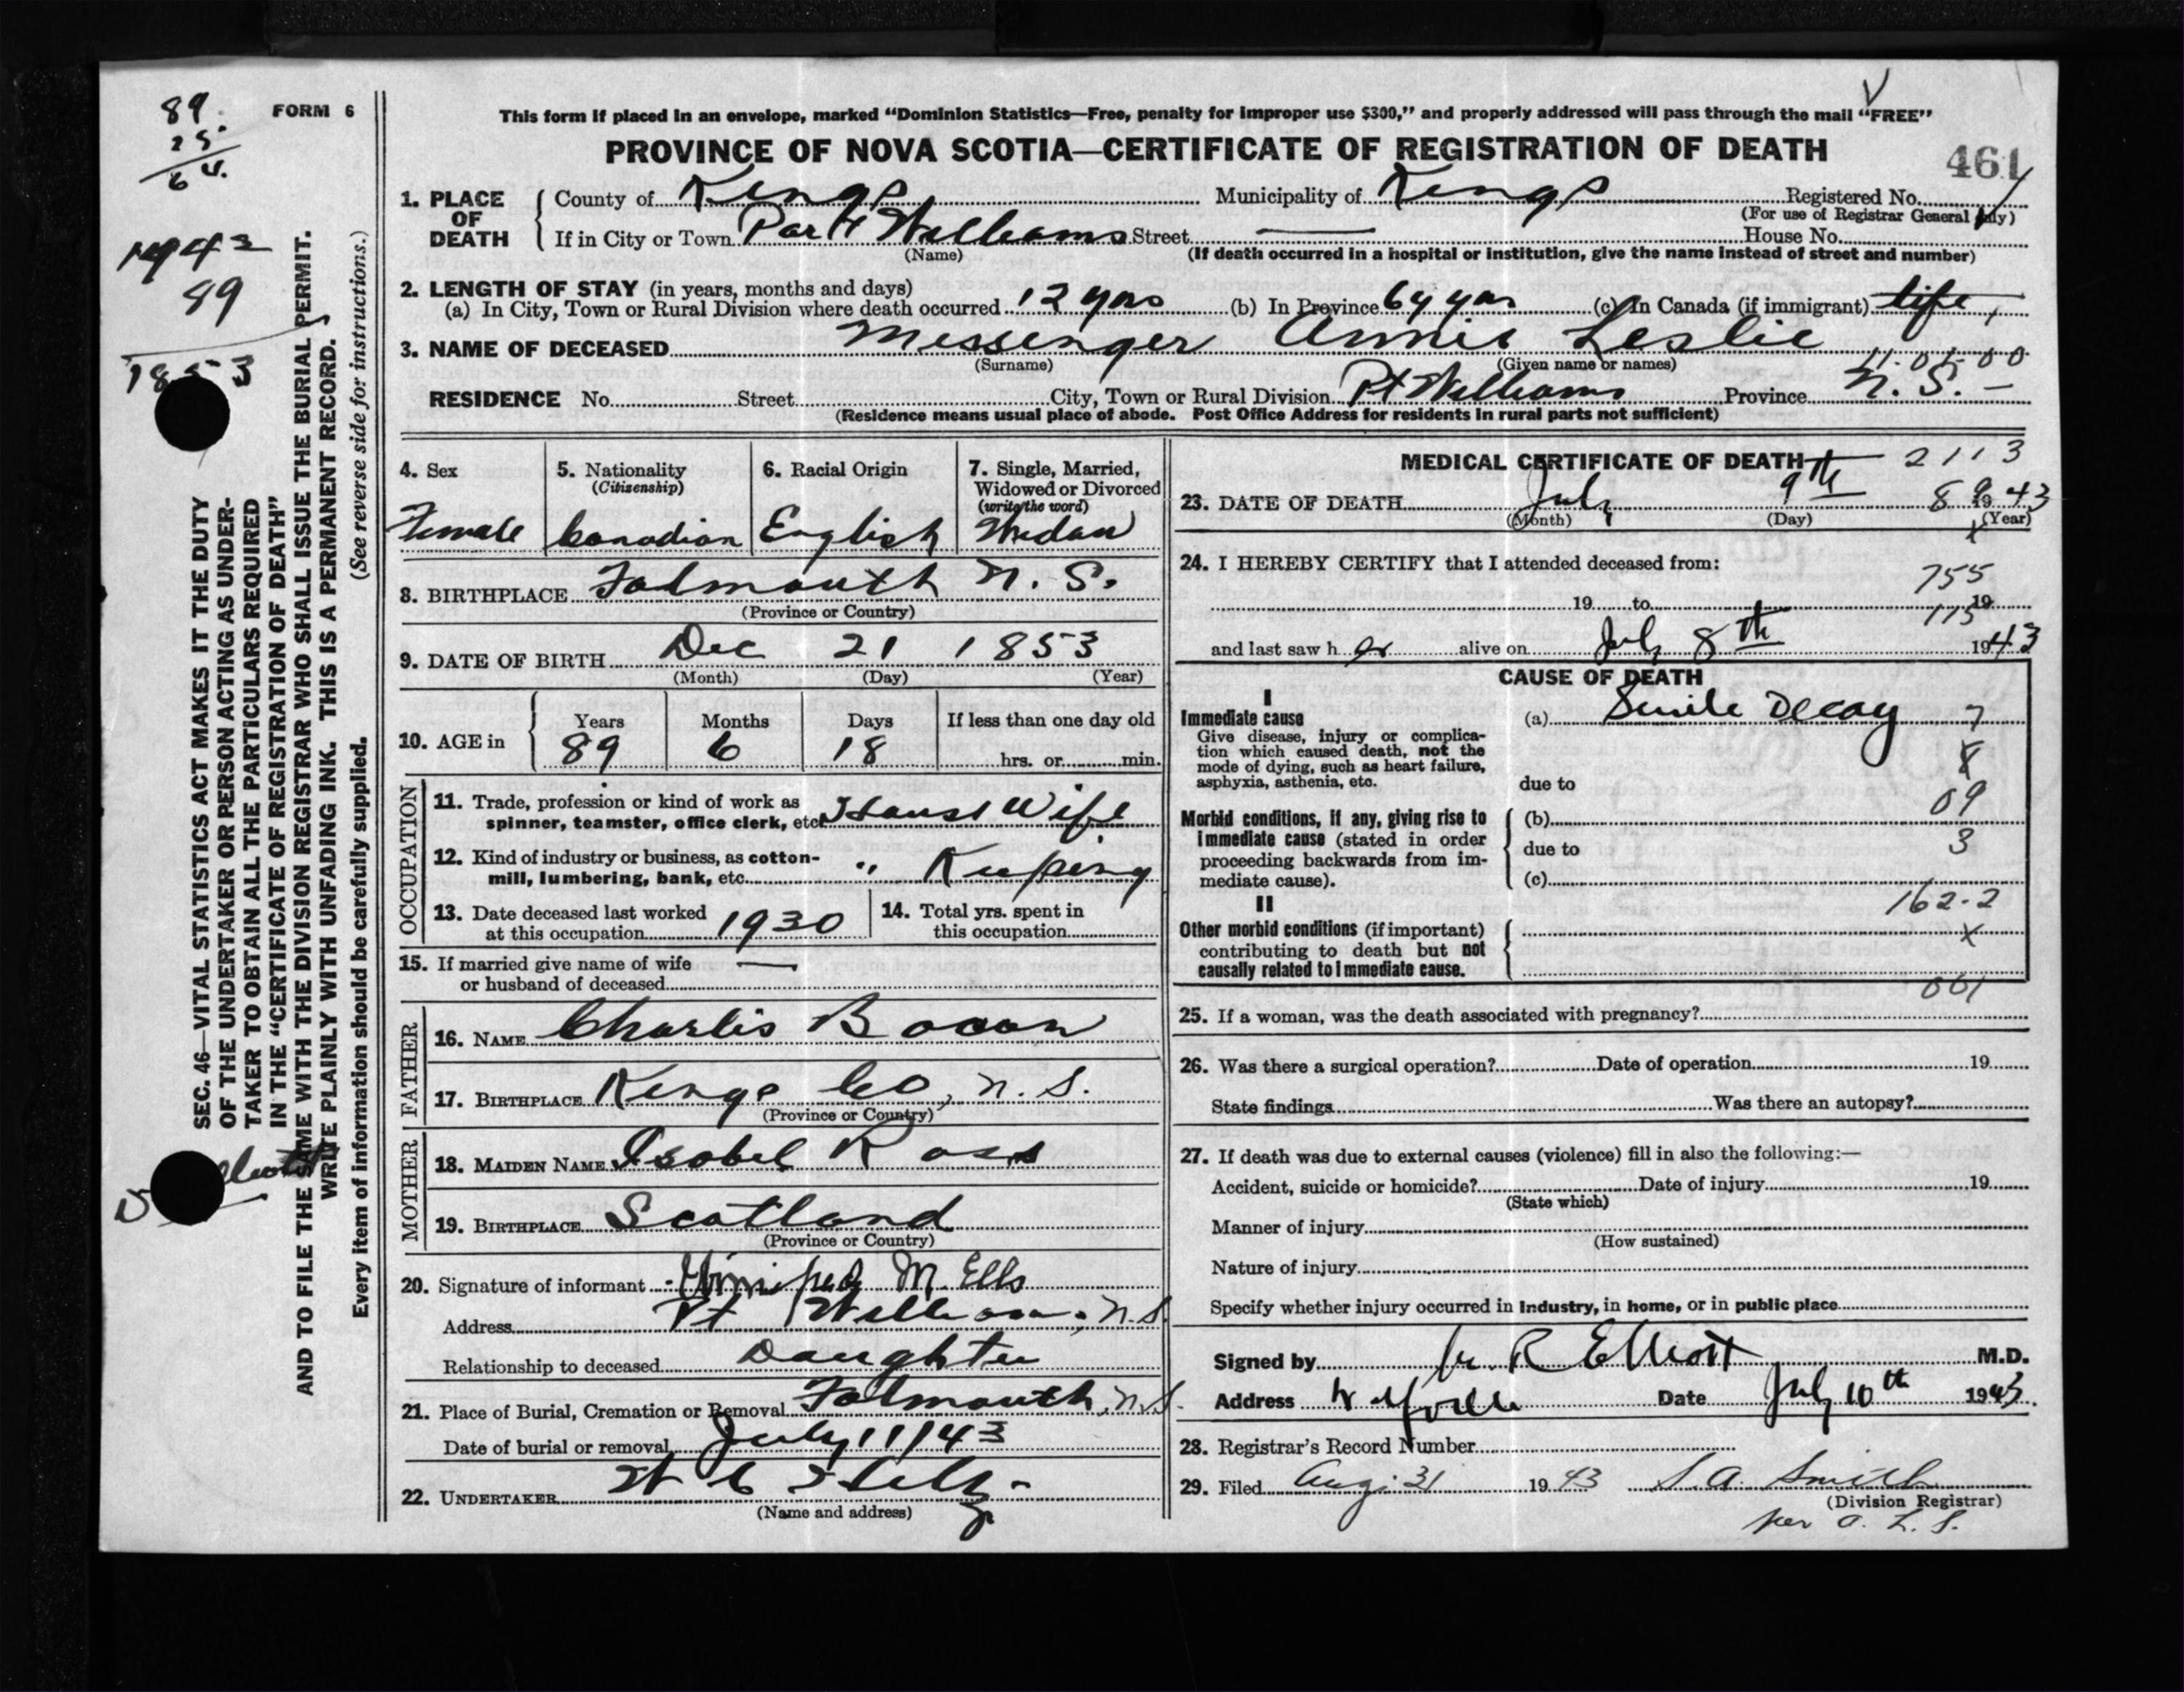 89
25
64
1943
89
1853
FORM 6
This form if placed in an envelope, marked "Dominion Statistics—Free, penalty for improper use $300," and properly addressed will pass through the mail "FREE"
PROVINCE OF NOVA SCOTIA—CERTIFICATE OF REGISTRATION OF DEATH
461
1. PLACE OF DEATH County of Kings Municipality of Kings Registered No.
(For use of Registrar General only)
If in City or Town Port Williams Street — House No.
(Name) (If death occurred in a hospital or institution, give the name instead of street and number)
2. LENGTH OF STAY (in years, months and days)
(a) In City, Town or Rural Division where death occurred 12 yrs (b) In Province 64 yrs (c) In Canada (if immigrant) life
3. NAME OF DECEASED Messenger Annie Leslie
(Surname) (Given name or names) 11-01-00
RESIDENCE No. Street City, Town or Rural Division Pt Williams Province N.S. —
(Residence means usual place of abode. Post Office Address for residents in rural parts not sufficient)
SEC. 46—VITAL STATISTICS ACT MAKES IT THE DUTY
OF THE UNDERTAKER OR PERSON ACTING AS UNDER-
TAKER TO OBTAIN ALL THE PARTICULARS REQUIRED
IN THE "CERTIFICATE OF REGISTRATION OF DEATH"
AND TO FILE THE SAME WITH THE DIVISION REGISTRAR WHO SHALL ISSUE THE BURIAL PERMIT.
WRITE PLAINLY WITH UNFADING INK. THIS IS A PERMANENT RECORD.
Every item of information should be carefully supplied. (See reverse side for instructions.)
4. Sex
Female
5. Nationality
(Citizenship)
Canadian
6. Racial Origin
English
7. Single, Married,
Widowed or Divorced
(write the word)
Widow
8. BIRTHPLACE Falmouth N.S.
(Province or Country)
9. DATE OF BIRTH Dec 21 1853
(Month) (Day) (Year)
10. AGE in Years Months Days If less than one day old
89 6 18 hrs. or min.
OCCUPATION
11. Trade, profession or kind of work as
spinner, teamster, office clerk, etc. House Wife
12. Kind of industry or business, as cotton-
mill, lumbering, bank, etc. " Keeping
13. Date deceased last worked
at this occupation 1930
14. Total yrs. spent in
this occupation
15. If married give name of wife —
or husband of deceased
FATHER
16. NAME Charlis Bacon
17. BIRTHPLACE Kings Co, N.S.
(Province or Country)
MOTHER
18. MAIDEN NAME Isobel Ross
19. BIRTHPLACE Scotland
(Province or Country)
20. Signature of informant Winifred M. Ells
Address Pt Williams, N.S.
Relationship to deceased Daughter
21. Place of Burial, Cremation or Removal Falmouth, N.S.
Date of burial or removal July 11/43
22. UNDERTAKER W C
(Name and address)
MEDICAL CERTIFICATE OF DEATH 2113
23. DATE OF DEATH July 9th 89 1943
(Month) (Day) (Year)
24. I HEREBY CERTIFY that I attended deceased from:
755
19 to 19
115
and last saw her alive on July 8th 1943
CAUSE OF DEATH
I
Immediate cause (a) Senile Decay 7
Give disease, injury or complica-
tion which caused death, not the
mode of dying, such as heart failure,
asphyxia, asthenia, etc. due to
09
Morbid conditions, if any, giving rise to (b)
immediate cause (stated in order due to 3
proceeding backwards from im-
mediate cause). (c)
II 162-2
Other morbid conditions (if important) x
contributing to death but not
causally related to immediate cause.
001
25. If a woman, was the death associated with pregnancy?
26. Was there a surgical operation? Date of operation 19
State findings Was there an autopsy?
27. If death was due to external causes (violence) fill in also the following:—
Accident, suicide or homicide? Date of injury 19
(State which)
Manner of injury
(How sustained)
Nature of injury
Specify whether injury occurred in industry, in home, or in public place
Signed by R Elliott M.D.
Address Wolfville Date July 10th 1943.
28. Registrar's Record Number
29. Filed Aug. 31 1943 S.A. Smith
(Division Registrar)
per A. L. S.